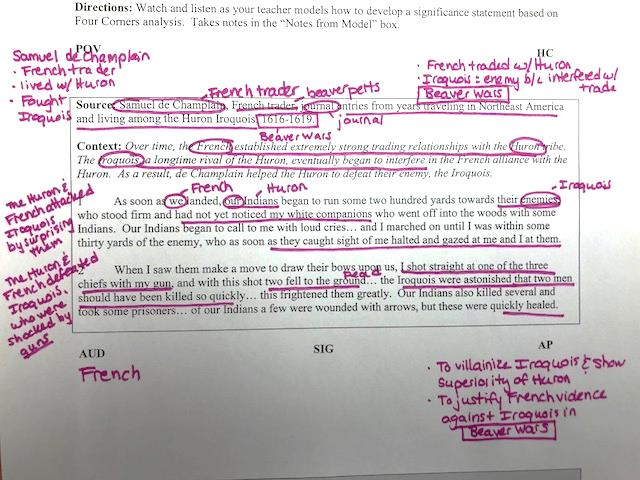 Directions: Watch and listen as your teacher models how to develop a significance statement based on
Four Corners analysis. Takes notes in the “Notes from Model” box.
POV
HC
Samuel de Champlain
• French trader
• lived w/ Huron
• Fought
Iroquois
• French traded w/ Huron
• Iroquois = enemy b/c interfered w/
trade
Beaver Wars
French trader
beaver pelts
Source: Samuel de Champlain, French trader, journal entries from years traveling in Northeast America
and living among the Huron Iroquois, 1616-1619.
journal
Beaver Wars
Context: Over time, the French established extremely strong trading relationships with the Huron tribe.
The Iroquois, a longtime rival of the Huron, eventually began to interfere in the French alliance with the
Huron. As a result, de Champlain helped the Huron to defeat their enemy, the Iroquois.
French
Huron
Iroquois
As soon as we landed, our Indians began to run some two hundred yards towards their enemies
who stood firm and had not yet noticed my white companions who went off into the woods with some
Indians. Our Indians began to call to me with loud cries… and I marched on until I was within some
thirty yards of the enemy, who as soon as they caught sight of me halted and gazed at me and I at them.
When I saw them make a move to draw their bows upon us, I shot straight at one of the three
dead
chiefs with my gun, and with this shot two fell to the ground… the Iroquois were astonished that two men
should have been killed so quickly… this frightened them greatly. Our Indians also killed several and
took some prisoners… of our Indians a few were wounded with arrows, but these were quickly healed.
The Huron &
French attacked
Iroquois
by surprising
them
The Huron &
French defeated
Iroquois.
who were
shocked by
guns
AUD
French
SIG
AP
• To villainize Iroquois & show
Superiority of Huron
• To justify French vidence
against Iroquois in
Beaver Wars